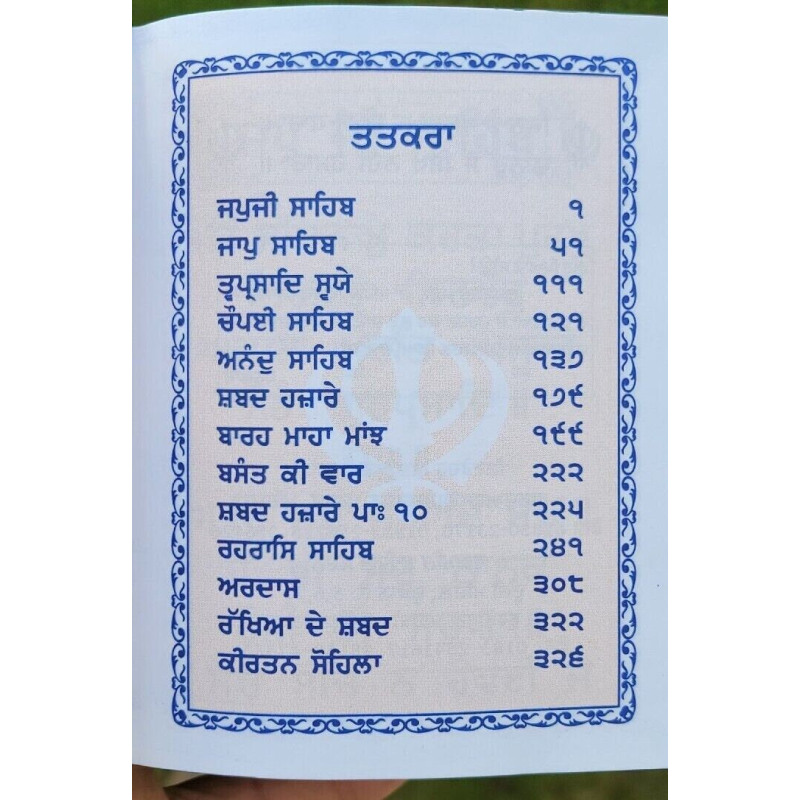 ਤਤਕਰਾ
ਜਪੁਜੀ ਸਾਹਿਬ ੧
ਜਾਪੁ ਸਾਹਿਬ ੫੧
ਤ੍ਵਪ੍ਰਸਾਦਿ ਸ੍ਵਯੇ ੧੧੧
ਚੌਪਈ ਸਾਹਿਬ ੧੨੧
ਅਨੰਦੁ ਸਾਹਿਬ ੧੩੭
ਸ਼ਬਦ ਹਜ਼ਾਰੇ ੧੭੯
ਬਾਰਹ ਮਾਹਾ ਮਾਂਝ ੧੯੯
ਬਸੰਤ ਕੀ ਵਾਰ ੨੨੨
ਸ਼ਬਦ ਹਜ਼ਾਰੇ ਪਾਃ ੧੦ ੨੨੫
ਰਹਰਾਸਿ ਸਾਹਿਬ ੨੪੧
ਅਰਦਾਸ ੩੦੮
ਰੱਖਿਆ ਦੇ ਸ਼ਬਦ ੩੨੨
ਕੀਰਤਨ ਸੋਹਿਲਾ ੩੨੬